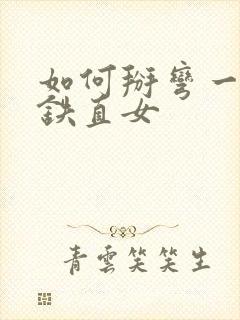 如何掰彎一
鉄直女
青雲笑笑生